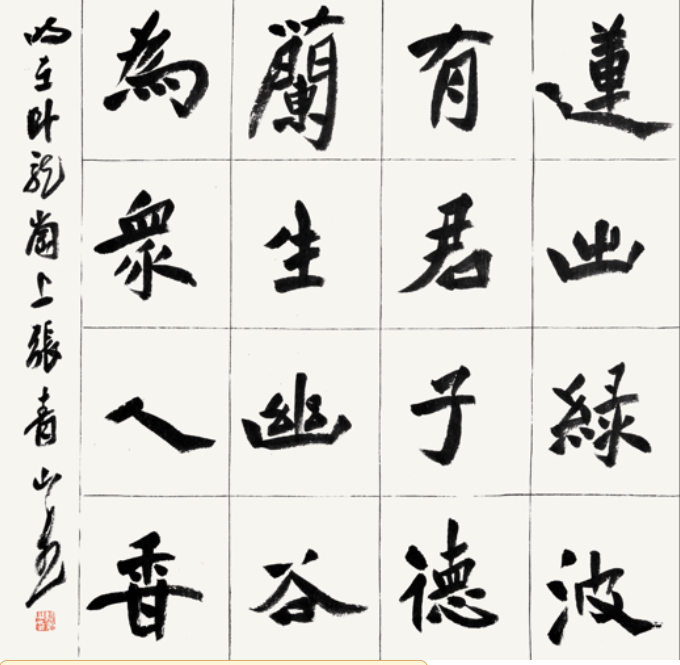 蓮出綠波
有君子德
蘭生幽谷
為衆人香
時在卧龍崗上張青山書